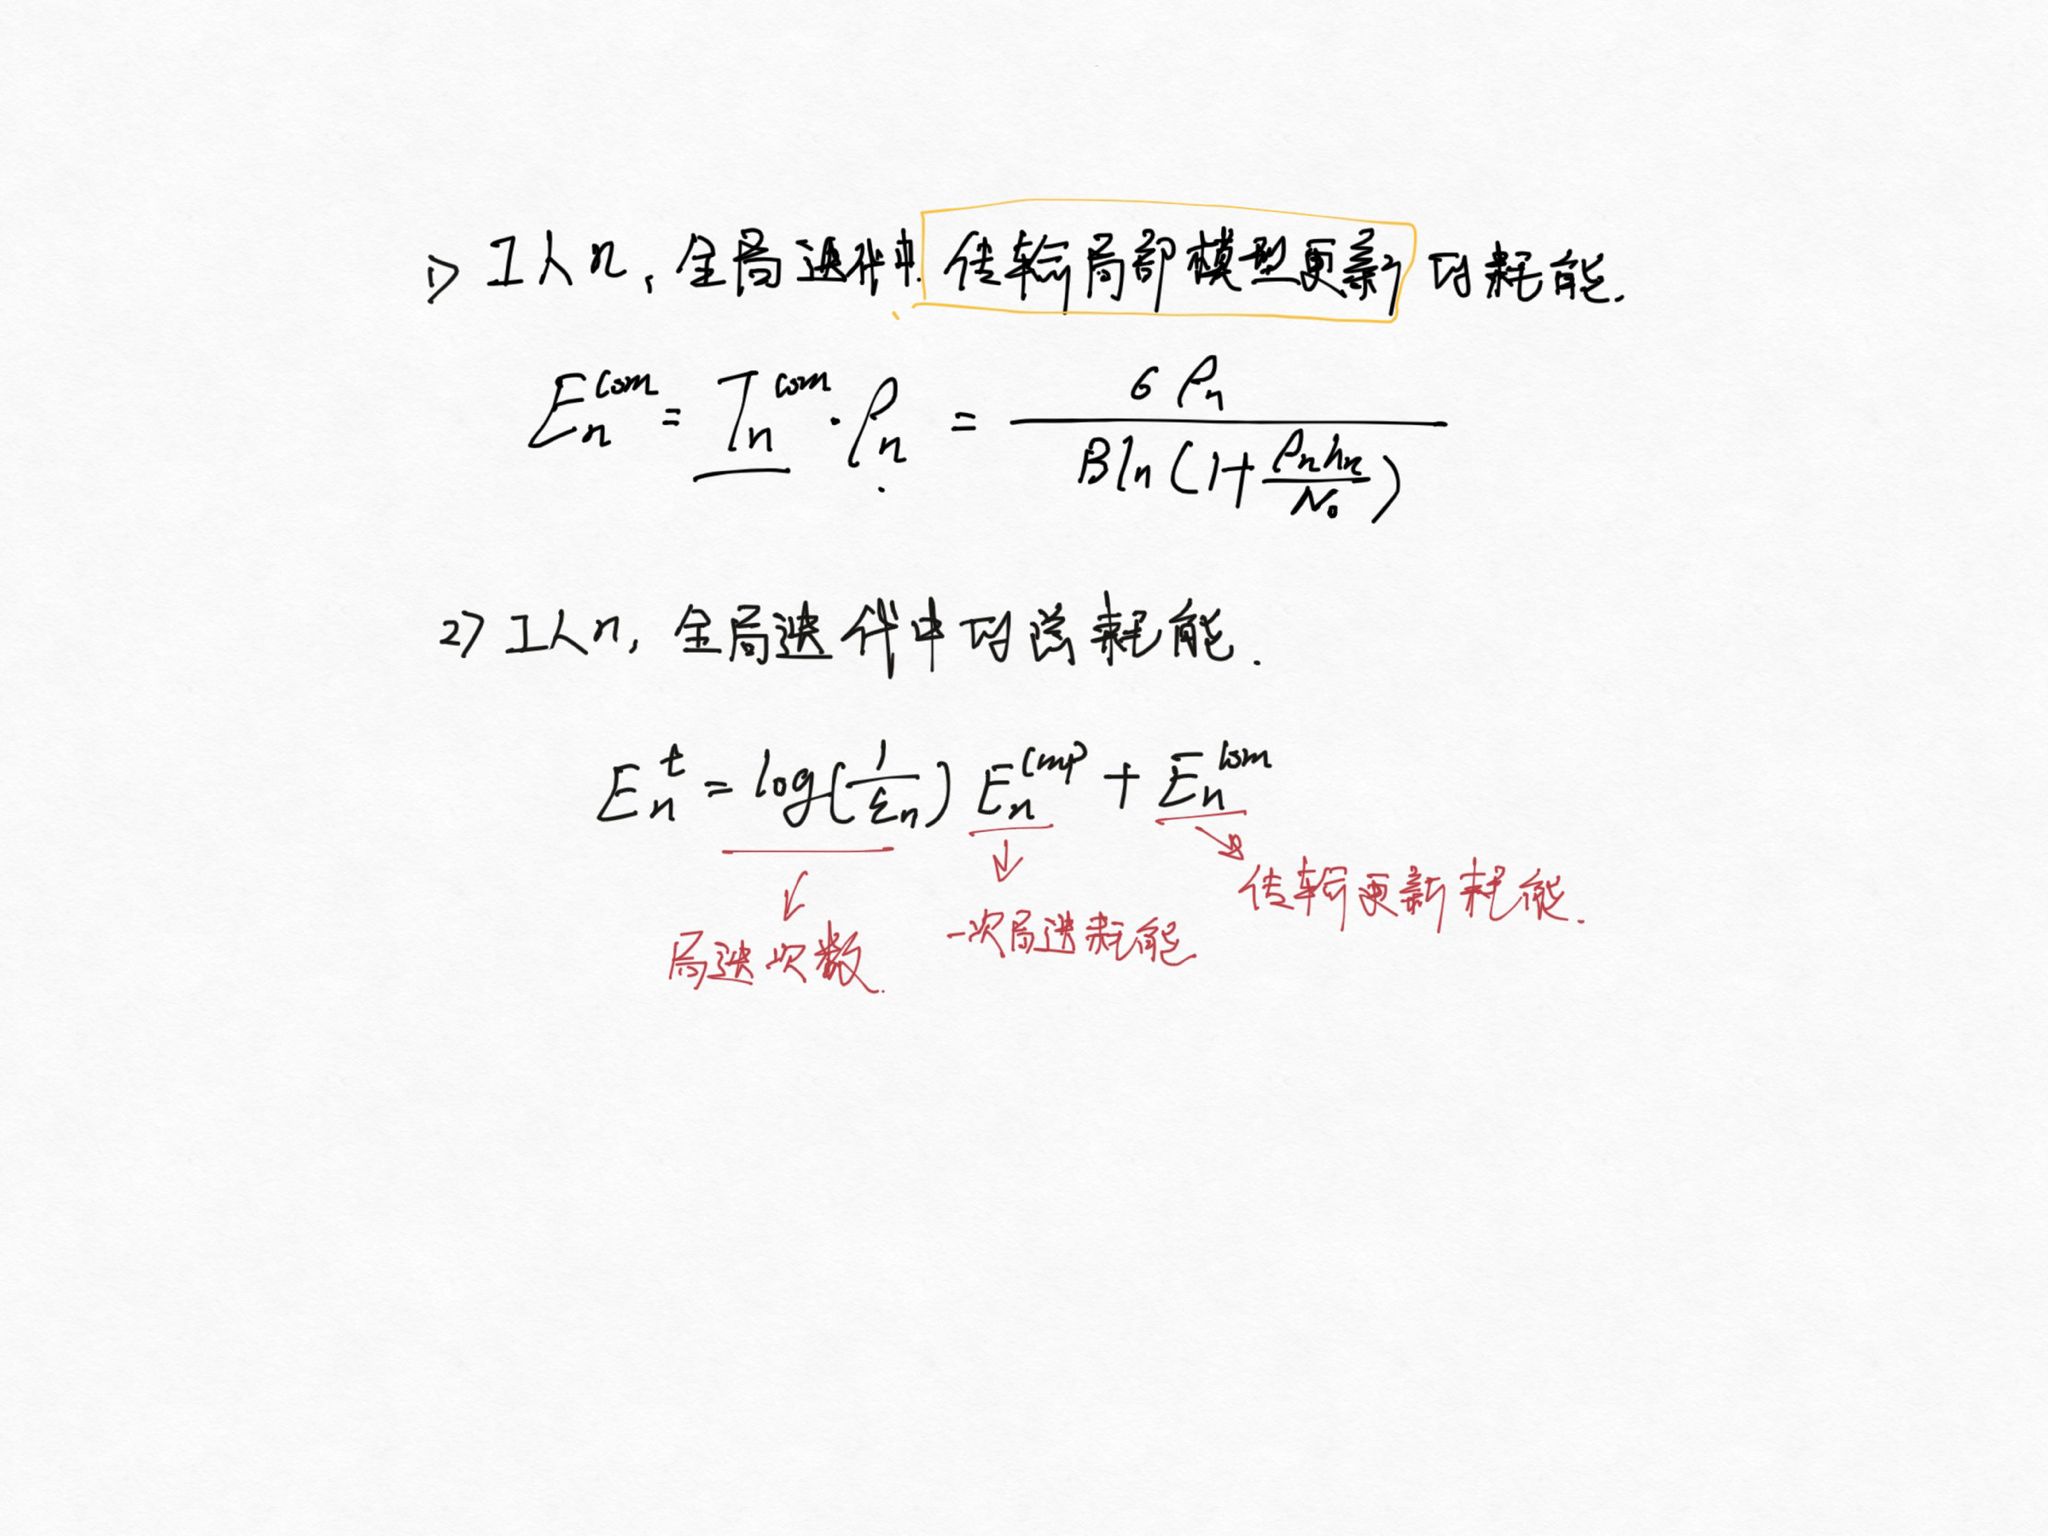 1) 工人n, 全局迭代中. 传输局部模型更新 的耗能.
E_n^{com} = T_n^{com} · ρ_n = \frac{σ ρ_n}{B ln(1+\frac{ρ_n h_n}{N_0})}
2) 工人n, 全局迭代中的总耗能.
E_n^t = log(\frac{1}{ε_n}) E_n^{cmp} + E_n^{com}
传输更新耗能.
一次局迭耗能
局迭次数.